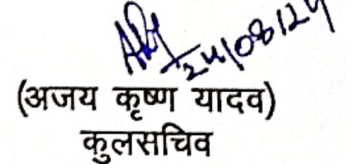 24/08/24
(अजय कृष्ण यादव)
कुलसचिव